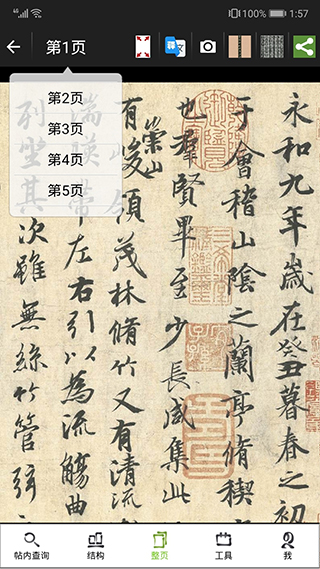 4G
1:57
第1页
第2页
第3页
第4页
第5页
永和九年歲在癸丑暮春之初
于會稽山陰之蘭亭脩禊
也羣賢畢至少長咸集此
有崇山峻領茂林脩竹又有清流
湍暎帶左右引以為流觴曲
列坐其次雖無絲竹管弦
帖内查询
结构
整页
工具
我